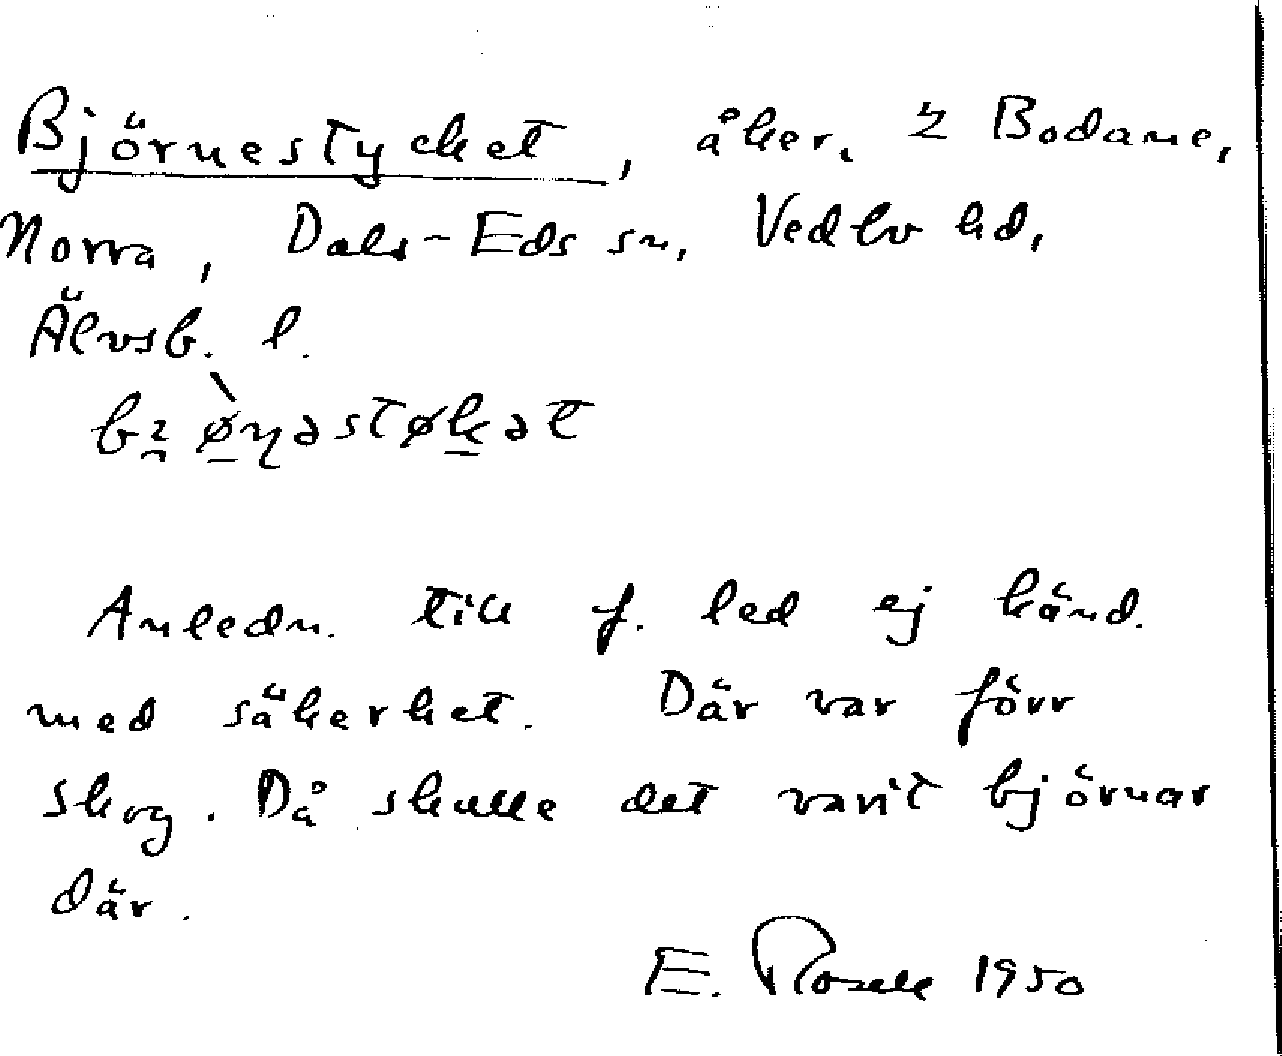 Björnestycket, åker. 2 Bodane,
Norra, Dals-Eds sn, Vedbo hd,
Älvsb. l.
Anledn. till f. led ej känd.
med säkerhet. Där var förr
skog. Då skulle det varit björnar
där.
E. Rosell 1950